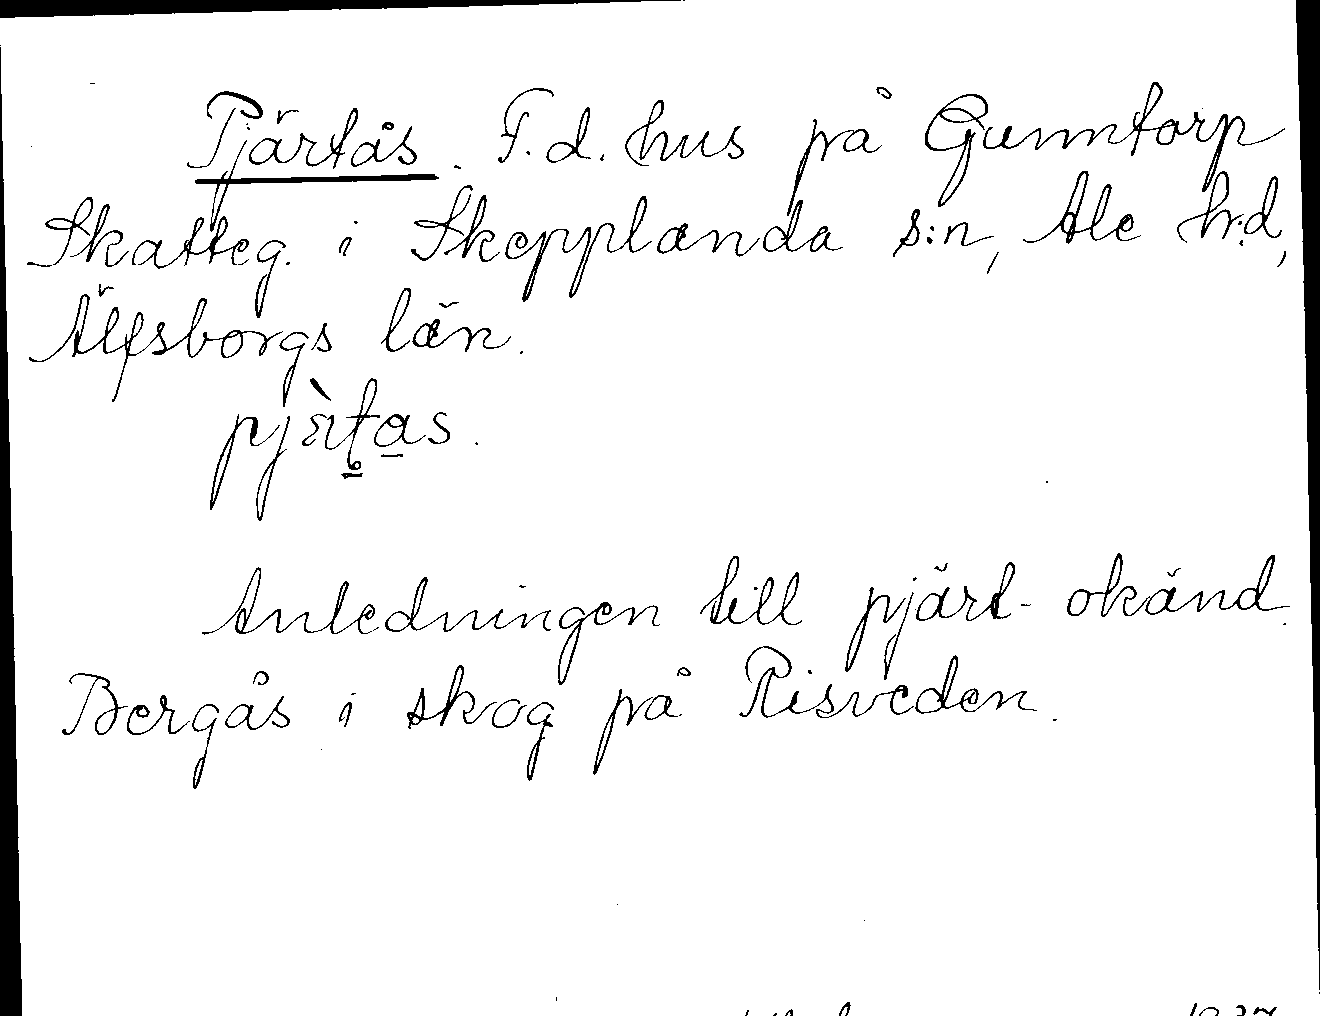 Pjärtås. F.d. hus på Gunntorp
Skatteg. i Skepplanda s:n, Ale h:d,
Älfsborgs län.
Anledningen till pjärt- okänd.
Bergås i skog på Risveden.
1937